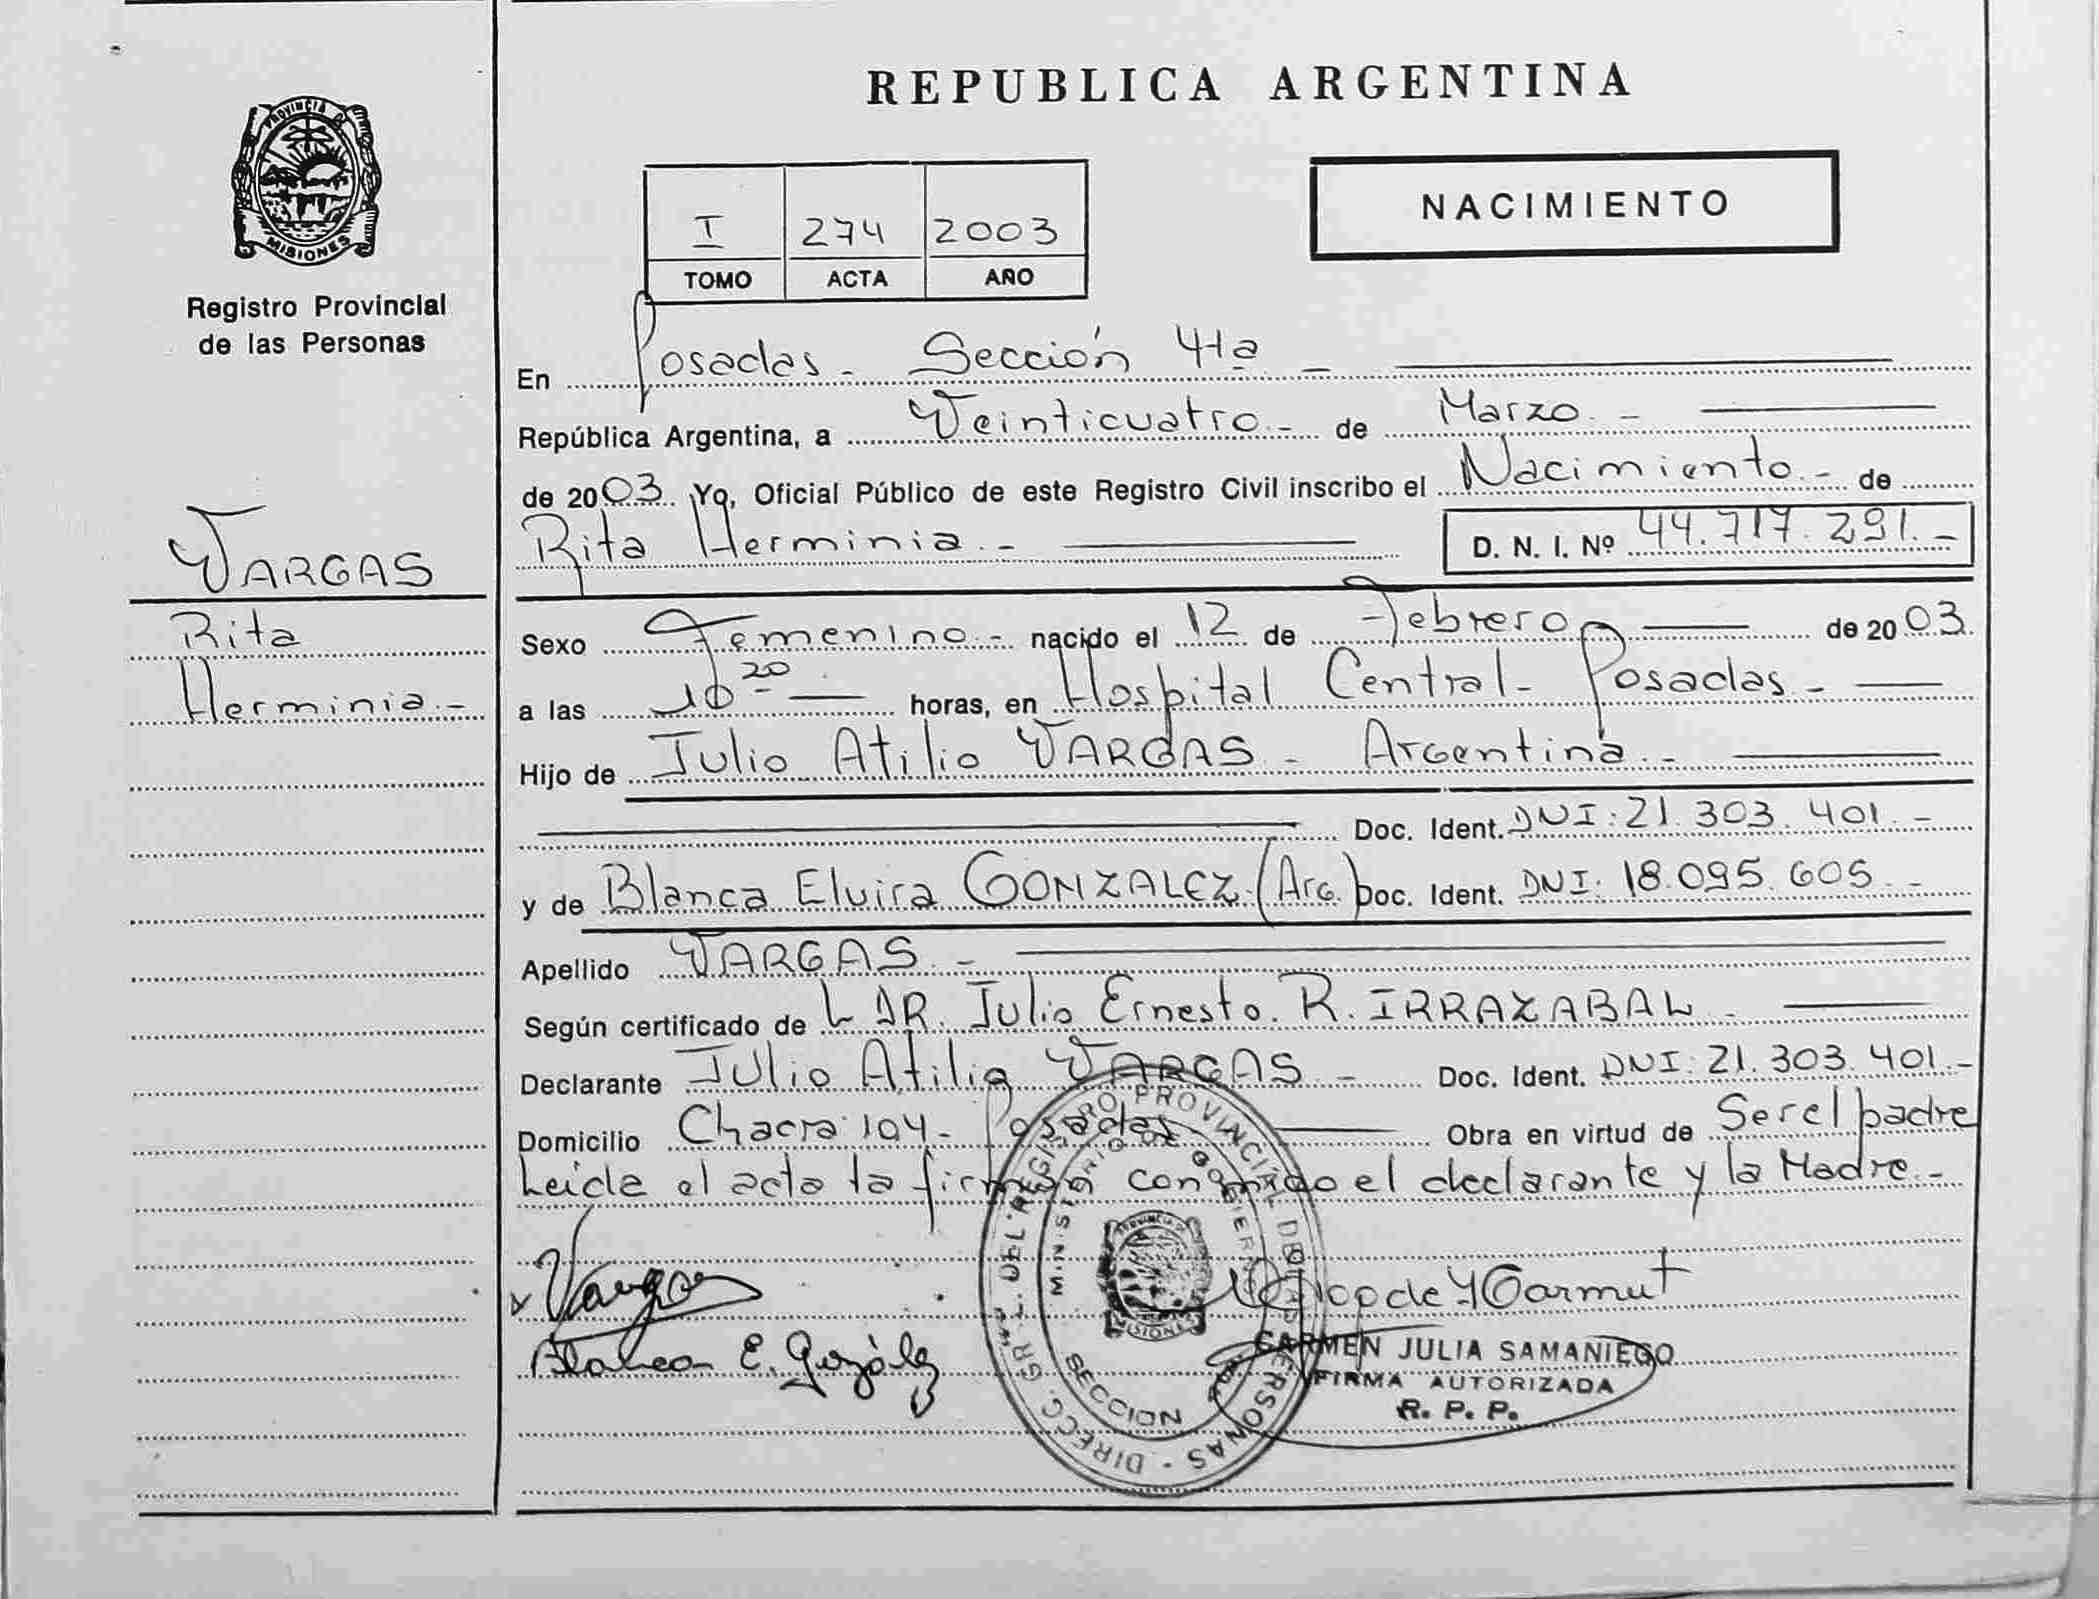 REPUBLICA ARGENTINA
PROVINCIA DE
MISIONES
Registro Provincial
de las Personas
NACIMIENTO
I 274 2003
TOMO ACTA AÑO
En Posadas - Sección 4ta -
República Argentina, a Veinticuatro - de Marzo. -
de 2003 Yo, Oficial Público de este Registro Civil inscribo el Nacimiento. - de
Rita Herminia. - D. N. I. Nº 44.717.291. -
VARGAS
Rita
Herminia. -
Sexo Femenino. - nacido el 12 de Febrero de 2003.
a las 10 20 horas, en Hospital Central - Posadas. -
Hijo de Julio Atilio VARGAS - Argentina. -
Doc. Ident. DNI: 21.303.401. -
y de Blanca Elvira GONZALEZ. (Arg.) Doc. Ident. DNI: 18.095.605. -
Apellido VARGAS. -
Según certificado de L DR. Julio Ernesto. R. IRRAZABAL -
Declarante Julio Atilio VARGAS - Doc. Ident. DNI: 21.303.401. -
Domicilio Chacra 104 - Posadas Obra en virtud de Ser el padre
Leida el acta la firman conmigo el declarante y la Madre. -
Vargas
Blanca E. González
CARMEN JULIA SAMANIEGO
FIRMA AUTORIZADA
R. P. P.
DIRECC. GRAL. DEL REGISTRO PROVINCIAL DE LAS PERSONAS -
MINISTERIO DE GOBIERNO
SECCION